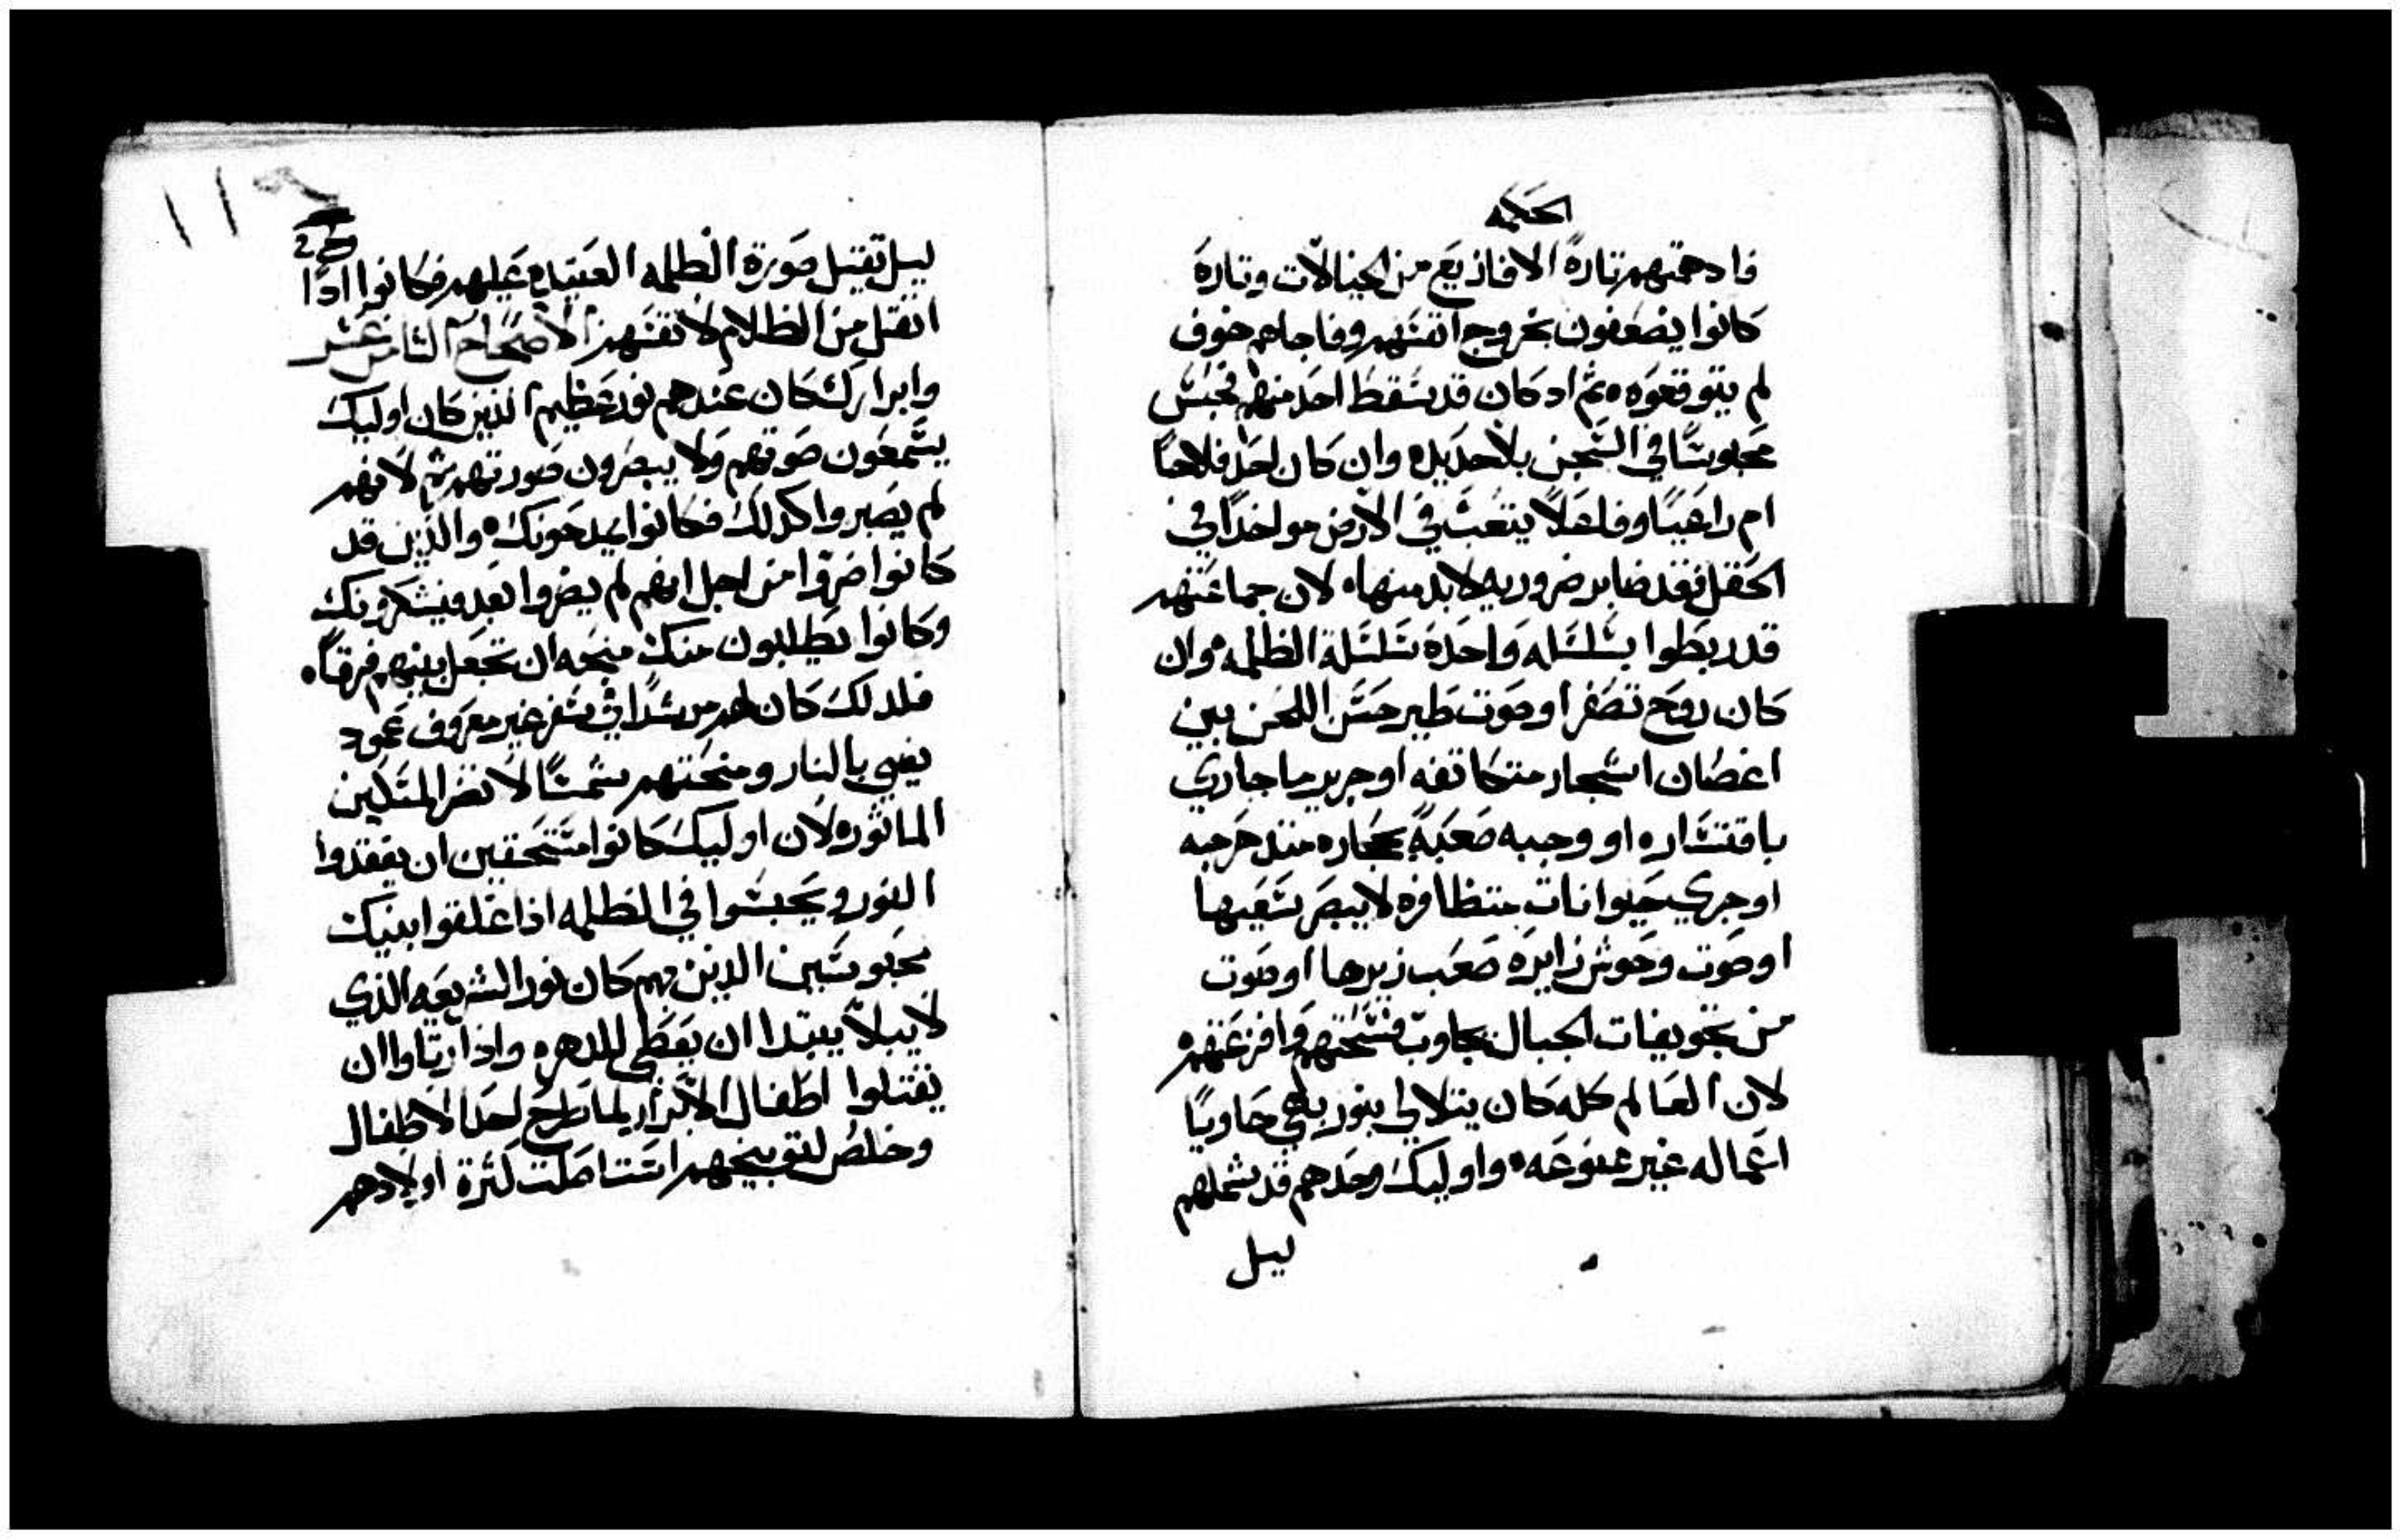 الحكمه
فادهمتهم تارةً الافازيع من الخيالات وتارة
كانوا يضعفون بخروج انفسهم وفاجاهم خوف
لم يتوقعوه ثم اد كان قد سقط احد منهم فحبس
محبوسًا في السجن بلا حديد وان كان احد فلاحًا
ام راعيًا وفاعلًا يتعب في الارض مواخدًا في
الحقل فقد صابر ضروريه لا بد منها لان جماعتهم
قد ربطوا بسلسله واحدة سلسلة الظلمه وان
كان روح تصفر او صوت طير حسن اللحن بين
اغصان اشجار متكاتفه او جرير ما جاري
باقتساره او وجبه صعبةً بحجاره متدحرجه
او جري حيوانات متظافره لا يبصر سعيها
او صوت وحوش زايره صعب زيرها او صوت
من تجويفات الجبال تجاوب فشتتهم وافزعتهم
لان العالم كله كان يتلالى بنور بهي حاويًا
اعماله غير ممنوعه واوليك وحدهم قد شملهم
ليل
ليل ثقيل صورة الظلمه العتيده عليهم فكانوا ادًا
اثقل من الظلام لانفسهم الاصحاح الثامن عشر
وابرارك كان عندهم نور عظيم الذين كان اوليك
يسمعون صوتهم ولا يبصرون صورتهم ثم لانهم
لم يصبروا كدلك فكانوا يمدحونك والذين قد
كانوا ضروا من اجل انهم لم يضروا بعد فيشكرونك
وكانوا يطلبون منك منحه ان تجعل بينهم فرقًا
فلدلك كان لهم مرشدًا في سفر غير معروف عمود
يضي بالنار ومنحتهم شمسًا لا تضر المسكين
الماثوره لان اوليك كانوا مستحقين ان يفقدوا
النور ويحبسوا في الظلمه اذا غلقوا بنيك
محبوسين الدين بهم كان نور الشريعه الذي
لا يبلا يبتدا ان يعطى للدهر واذا ارتاوا ان
يقتلوا اطفال الابرار لما طرح احد الاطفال
وخلص لتوبيخهم استاصلت كثرة اولادهم